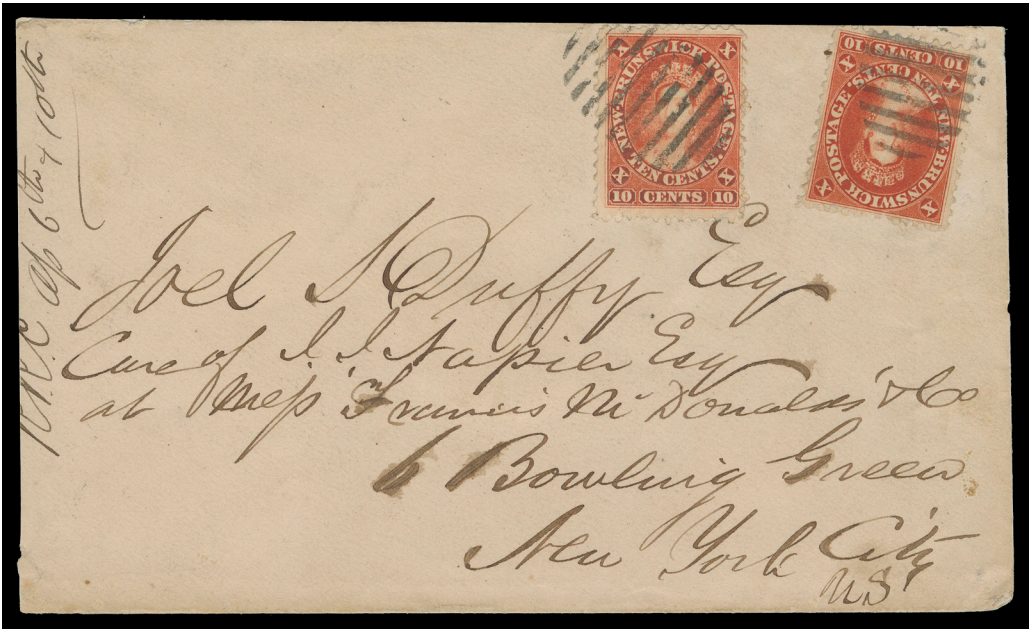 X X
NEW-BRUNSWICK POSTAGE.
TEN CENTS.
X X
10 CENTS 10
X X
NEW-BRUNSWICK POSTAGE.
TEN CENTS.
X X
10 CENTS 10
ap 6th & 10th
Joel S Duffy Esq
Care of J. J Napier Esq
at Mess Francis McDonald's & Co
6 Bowling Green
New York City
US